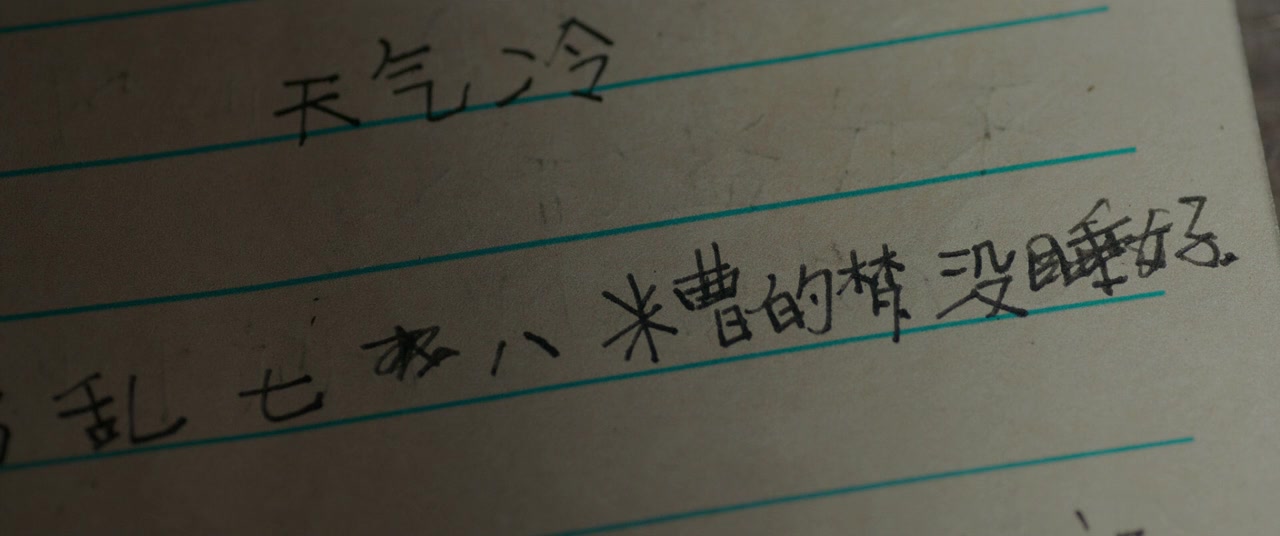 天气冷
乱七八糟的梦 没睡好.